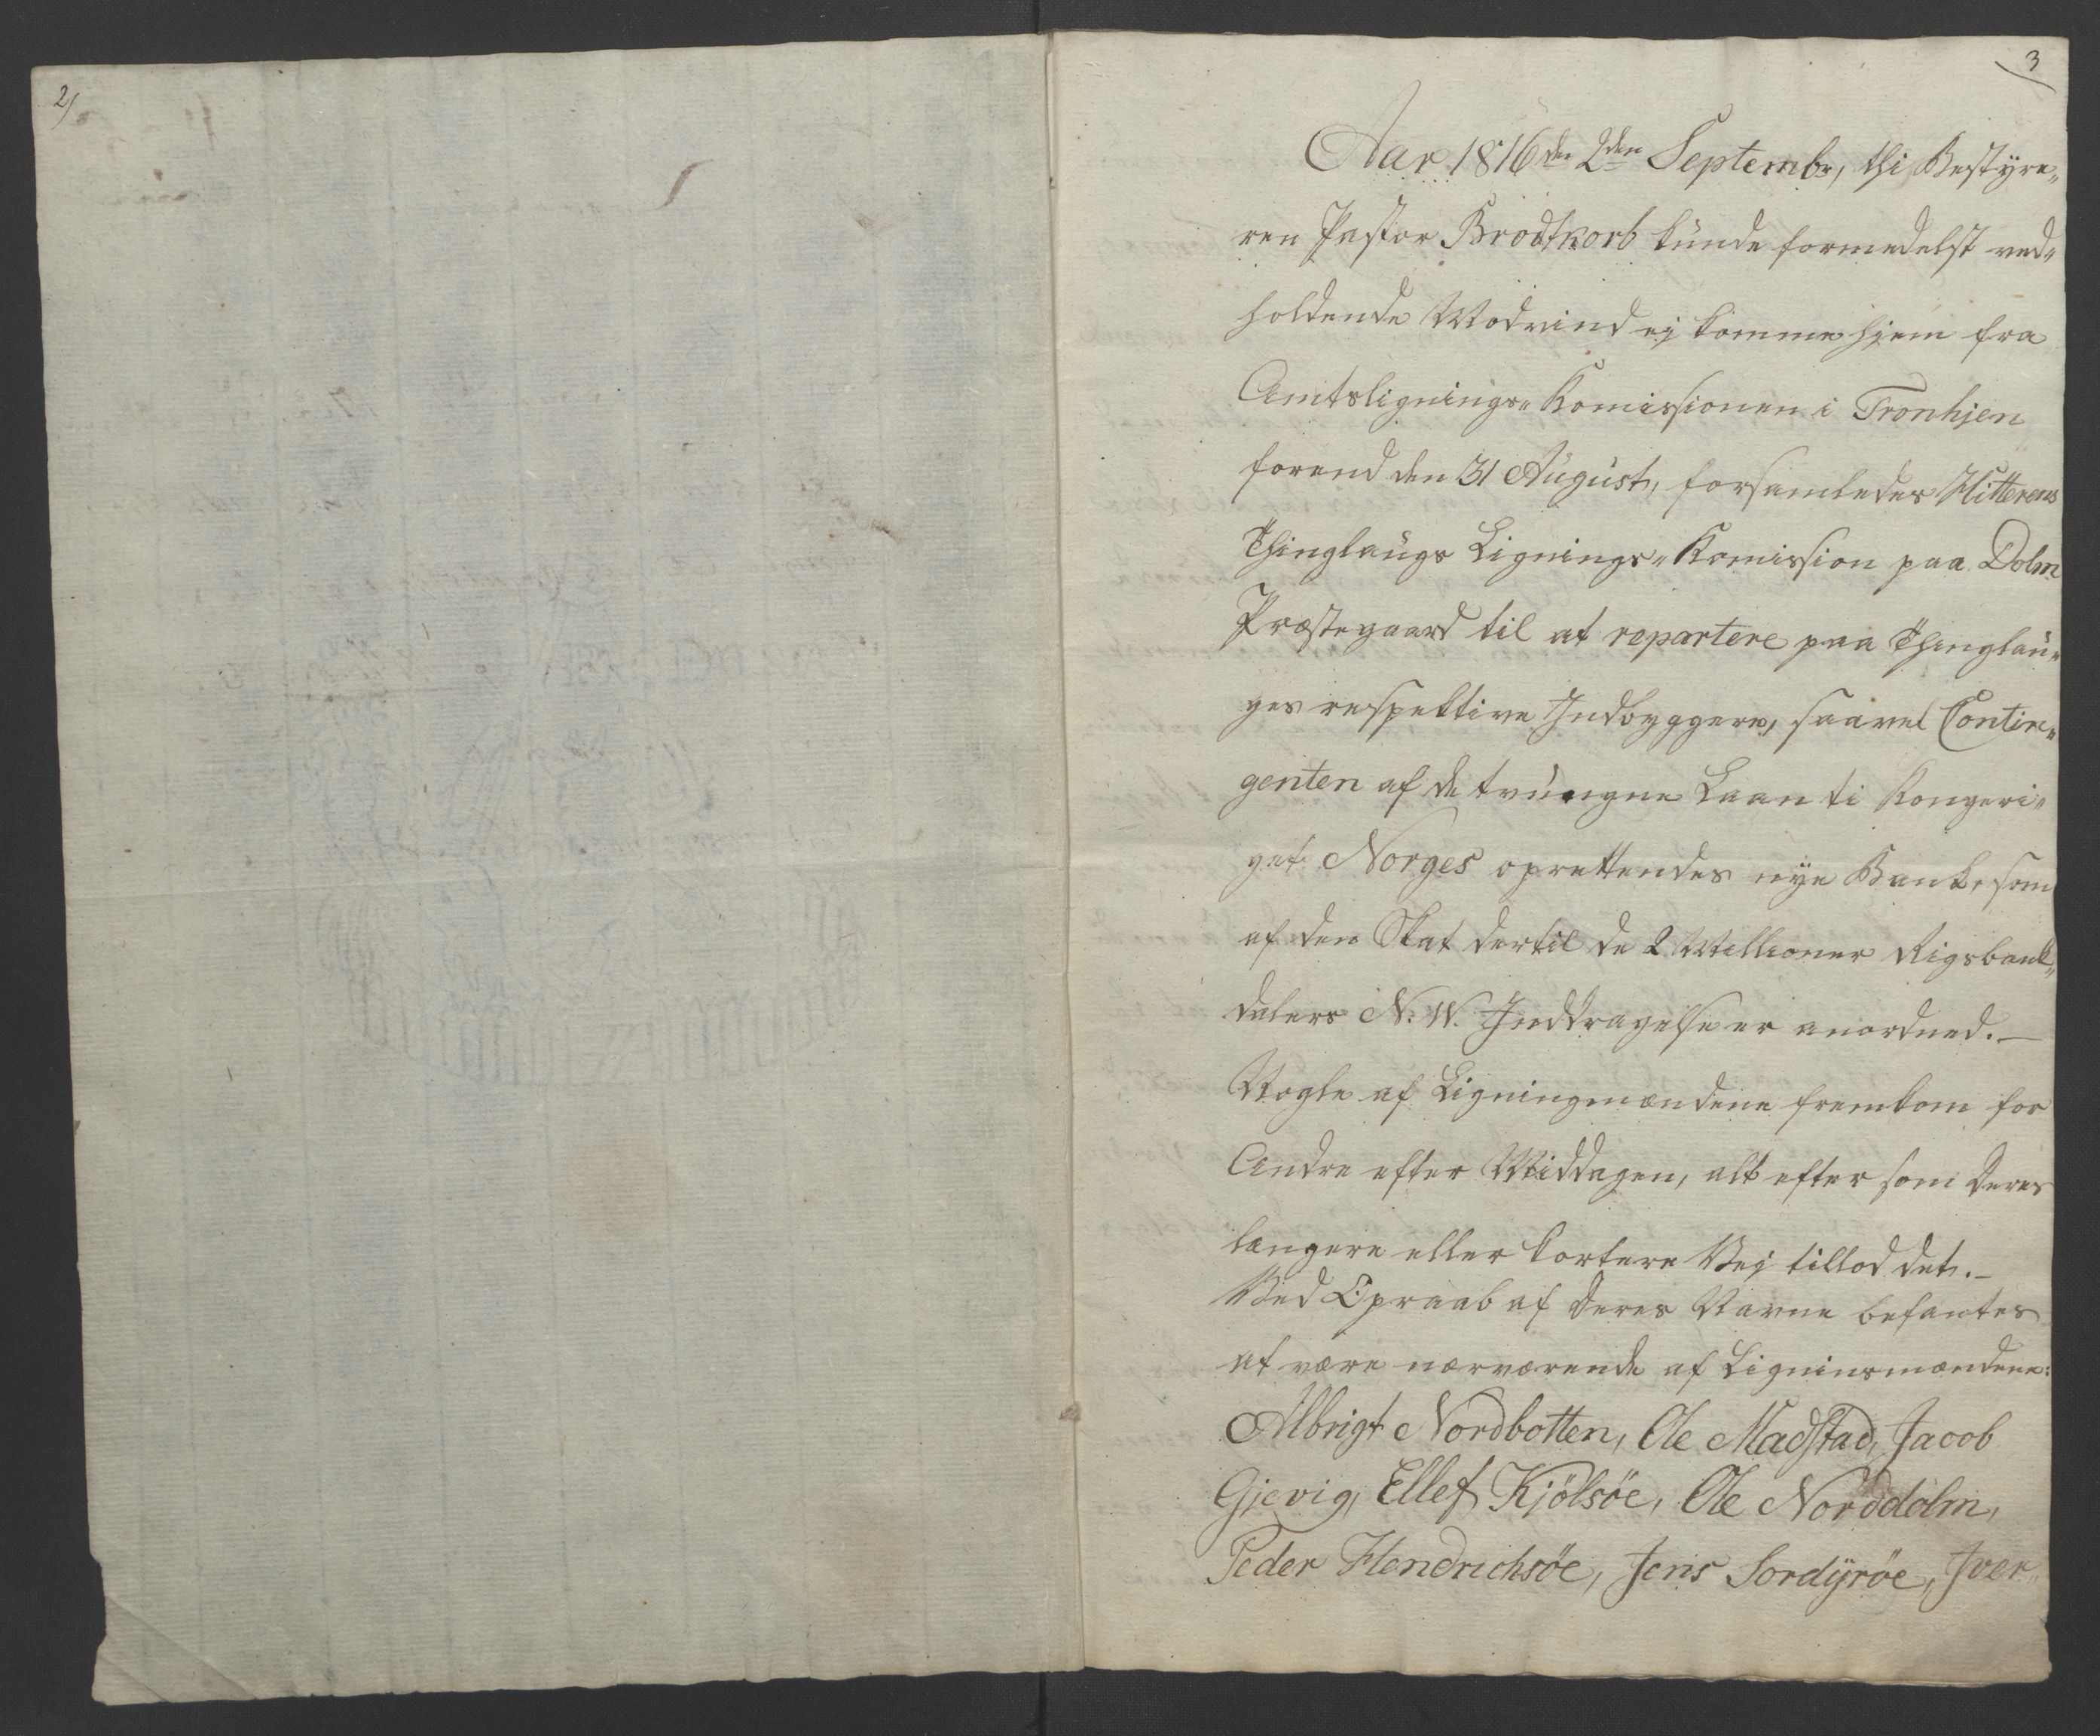 2/
3
Aar 1816 den 2den Septembr, thi Bestyre„
ren Pastor Brodtkorb kunde formedelst ved„
holdende Modvind ej komme hjem fra
Amtslignings„Komissionen i Tronhjen
forend den 31 August, forsamledes Hitterens
Thinglaugs Lignings„Komission paa Dolm
Præstegaard til at repartere paa Thinglau„
ges respektive Indbyggere, saavel Contin„
genten af de tvungne Laan ti Kongeri„
get Norges oprettendes nye Bank, som
af den Skat dertil de 2 Millioner Rigsbank„
dalers N. W. Inddragelse er anordned.—
Nogle af Ligningmændene fremkom for
Andre efter Middagen, alt efter som deres
længere eller kortere Vej tillod det.—
Ved Opraab af deres Navne befantes
at være nærværende af Ligninsmændene:
Albrigt Nordbotten, Ole Madstad, Jacob
Gjevig, Ellef Kjölsöe, Ole Norddolm,
Peder Hendrichsöe, Jens Sordyröe, Iver„